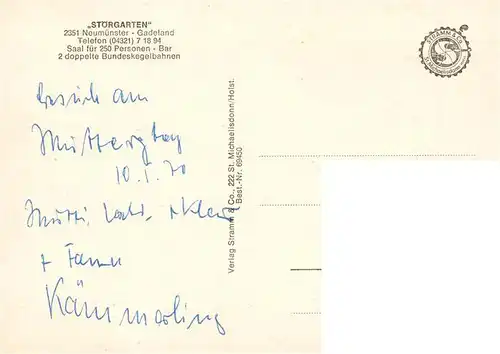 „STÖRGARTEN"
2351 Neumünster - Gadeland
Telefon (04321) 7 18 94
Saal für 250 Personen - Bar
2 doppelte Bundeskegelbahnen
Besuch am
Muttertag
10.5.70
Mutti, Vati
+ Fam
Kämmerling
Verlag Stramm & Co., 222 St. Michaelisdonn/Holst.
Best.-Nr. 69450
STRAMM & CO
St. Michaelisdonn